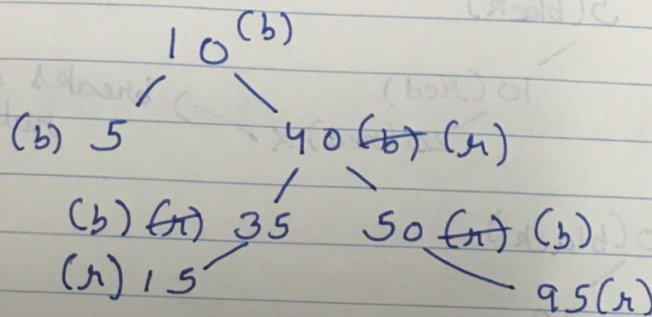 10 (b)
(b) 5 40 (b) (r)
(b) (r) 35 50 (r) (b)
(r) 15 95 (r)